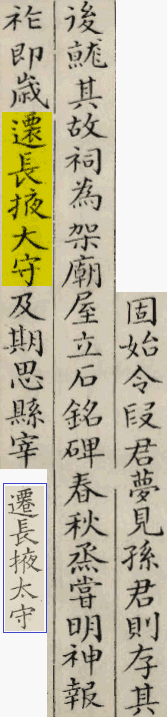 固始令段君夢見孫君則存其
後就其故祠為架廟屋立石銘碑春秋烝嘗明神報
祚即歲遷長掖大守及期思縣宰
遷長掖太守